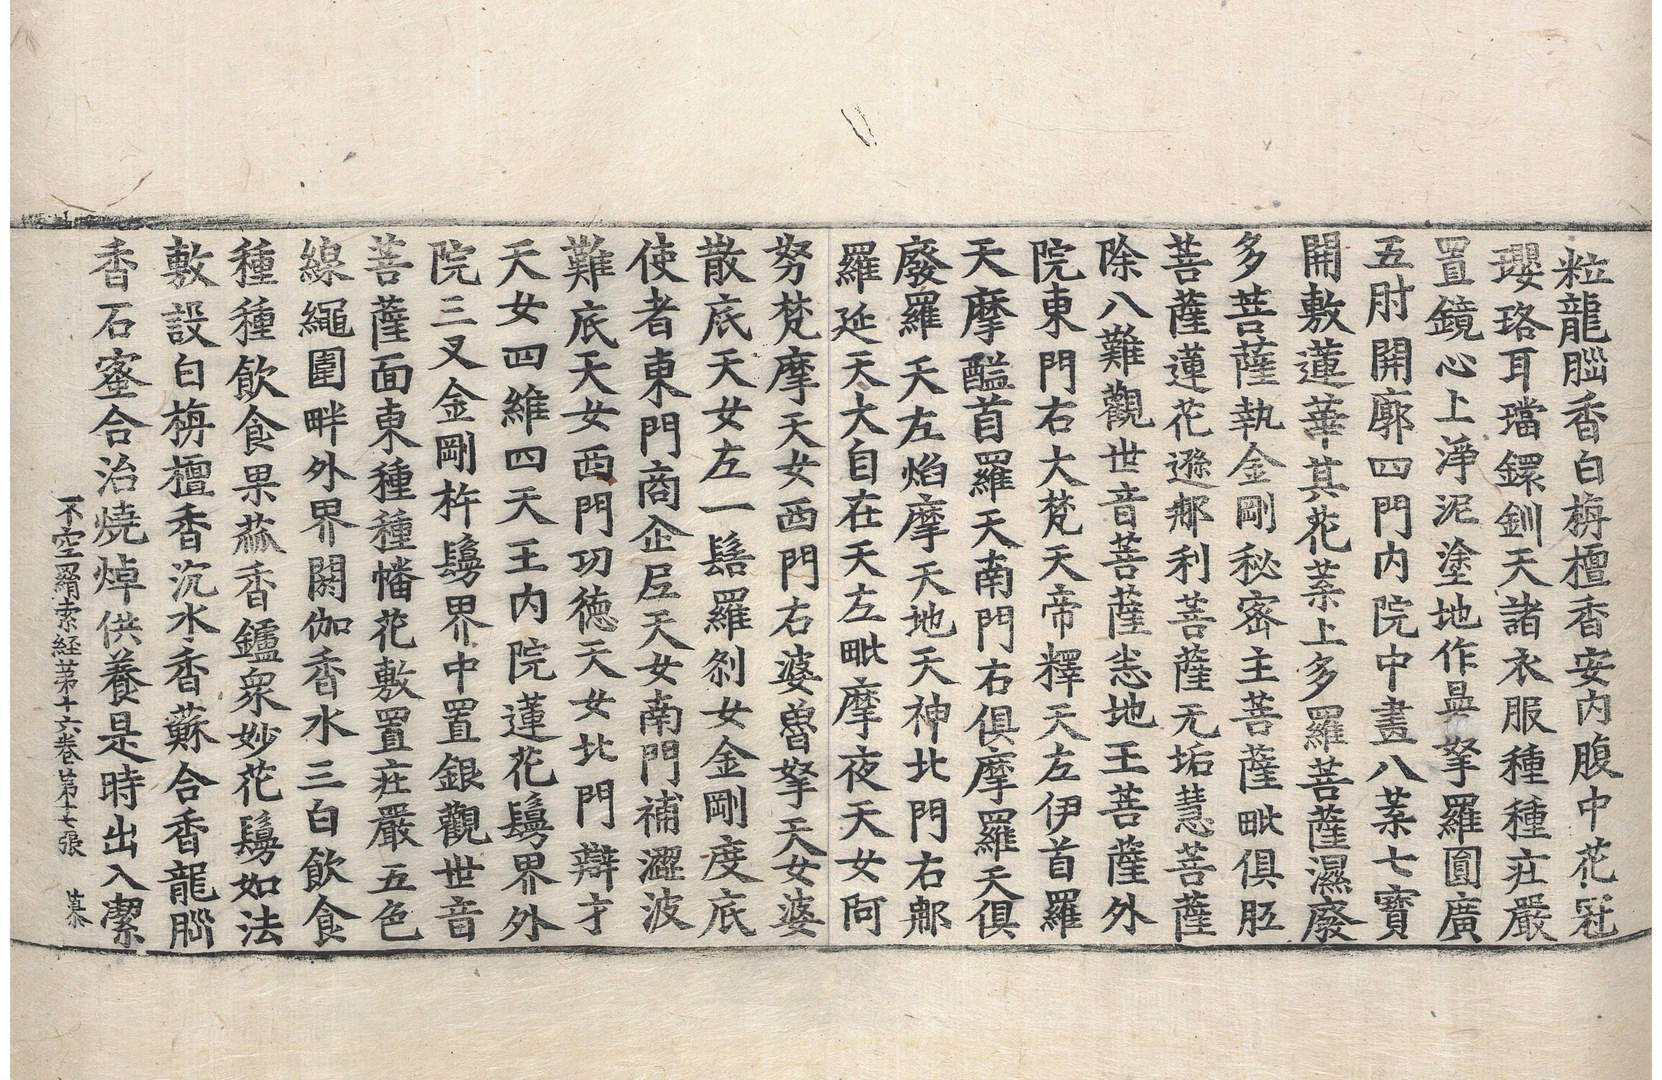 粒龍腦香白栴檀香安內腹中花冠
瓔珞耳璫鐶釧天諸衣服種種莊嚴
置鏡心上淨泥塗地作曼拏羅圓廣
五肘開廓四門內院中畫八葉七寶
開敷蓮華其花葉上多羅菩薩濕廢
多菩薩執金剛秘密主菩薩毗俱胝
菩薩蓮花遜那利菩薩无垢慧菩薩
除八難觀世音菩薩持地王菩薩外
院東門右大梵天帝釋天左伊首羅
天摩醯首羅天南門右俱摩羅天俱
廢羅天左焰摩天地天神北門右那
羅延天大自在天左毗摩夜天女阿
努梵摩天女西門右婆魯拏天女婆
散底天女左一髻羅剎女金剛度底
使者東門商企尼天女南門補澀波
難底天女西門功德天女北門辯才
天女四維四天王內院蓮花鬘界外
院三叉金剛杵鬘界中置銀觀世音
菩薩面東種種幡花敷置莊嚴五色
線繩圍畔外界閼伽香水三白飲食
種種飲食果蓏香鑪衆妙花鬘如法
敷設白栴檀香沉水香蘇合香龍腦
香石蜜合治燒焯供養是時出入潔
不空羂索経第十六卷 第十七張